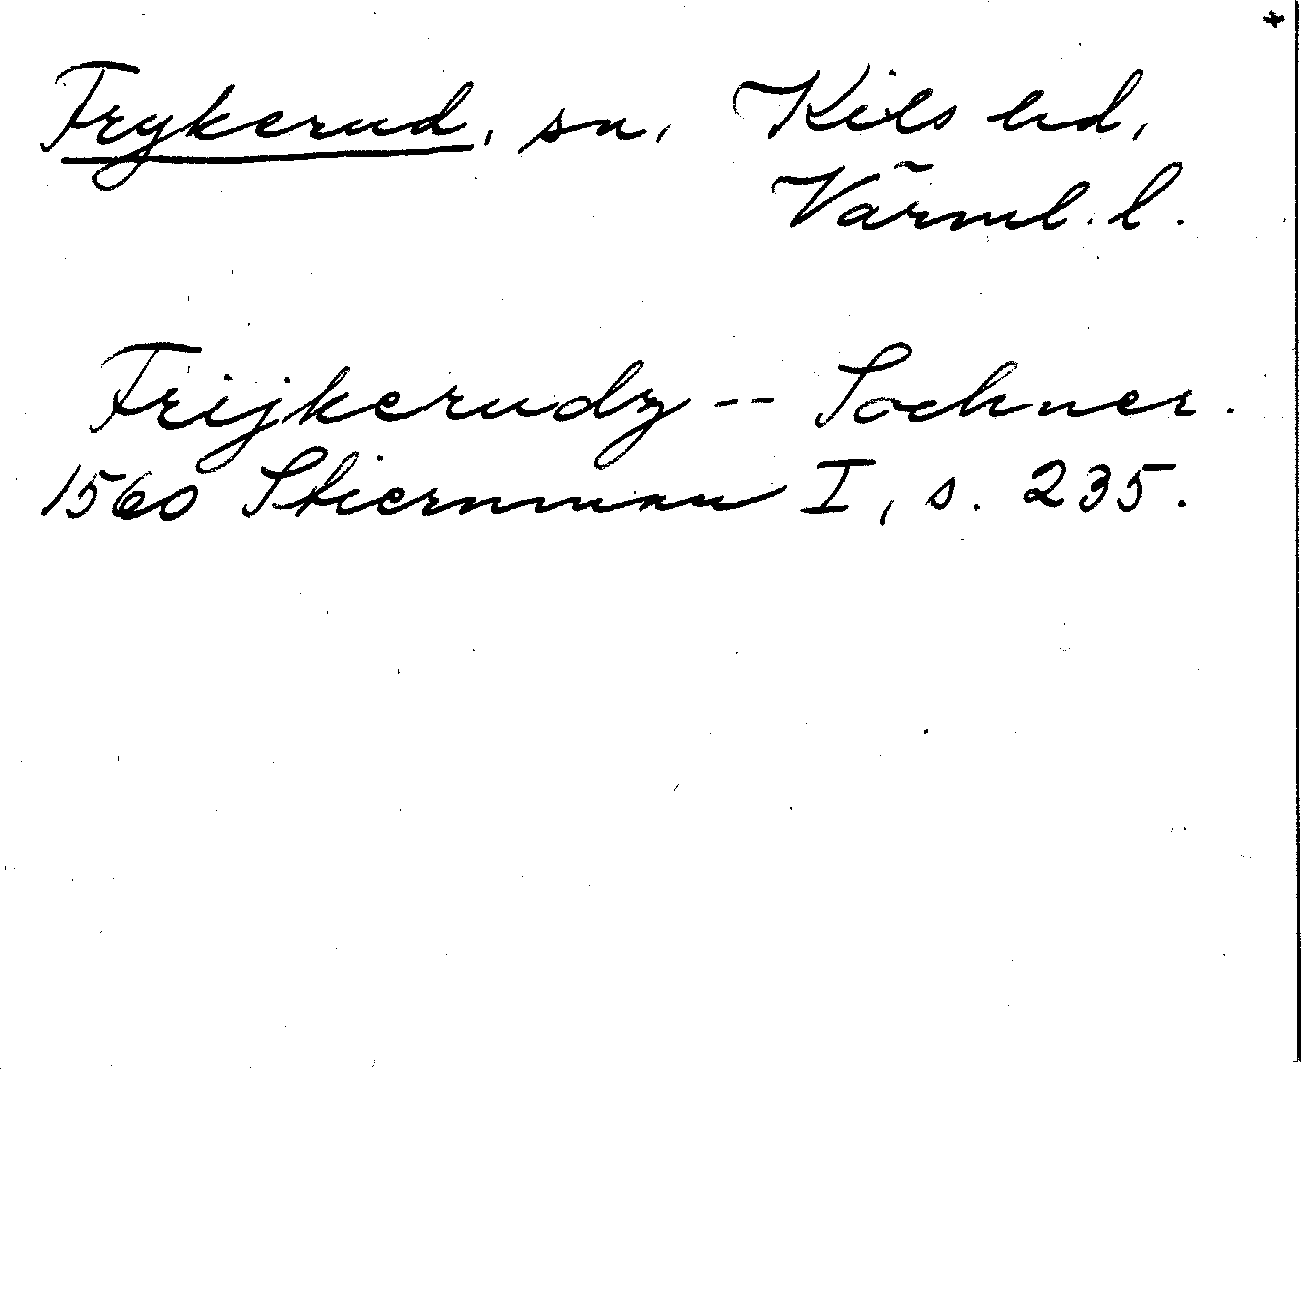 Frykerud, sn, Kils hd,
Värml. l.
Frijkerudz -- Sochner.
1560 Stiernman I, s. 235.